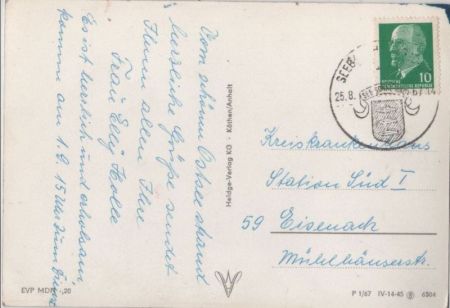 Vom schönen Ostseestrand
herzliche Grüße sendet
Ihnen allen Ihre
Frau Elly Holle
Es ist herrlich und erholsam
komme am 1.9. 15 Uhr zum
Heldge-Verlag KG · Köthen/Anhalt
SEEB
25.8. 67
10
DEUTSCHE
DEMOKRATISCHE REPUBLIK
Kreiskrankenhaus
Station Süd I
59 Eisenach
Mühlhäuserstr.
EVP MDN -,20
P 1/67 IV-14-45 6504